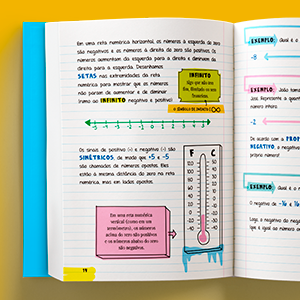 Em uma reta numérica horizontal, os números à esquerda do zero
são negativos e os números à direita do zero são positivos. Os
números aumentam da esquerda para a direita e diminuem da
direita para a esquerda. Desenhamos
SETAS nas extremidades da reta
numérica para mostrar que os números
não param de aumentar e de diminuir
(rumo ao INFINITO negativo e positivo).
INFINITO
Algo que não tem
fim, ilimitado ou sem
O SÍMBOLO DE INFINITO É ∞
-5 -4 -3 -2 -1 0 1 2 3 4 5
Os sinais de positivo (+) e negativo (-) são
SIMÉTRICOS, de modo que +5 e -5
são chamados de números opostos. Eles
estão à mesma distância do zero na reta
numérica, mas em lados opostos.
Em uma reta numérica
vertical (como em um
termômetro), os números
acima do zero são positivos
e os números abaixo do zero
são negativos.
F C
19
EXEMPLO: Qual é a
-8
EXEMPLO: João toma
José. Represente a quan
número inteiro.
-2
De acordo com a PROP
NEGATIVO, a negativa
próprio número!
EXEMPLO: Qual é o
O negativo de -16 é 16
Logo, o negativo do negat
que é igual ao número or